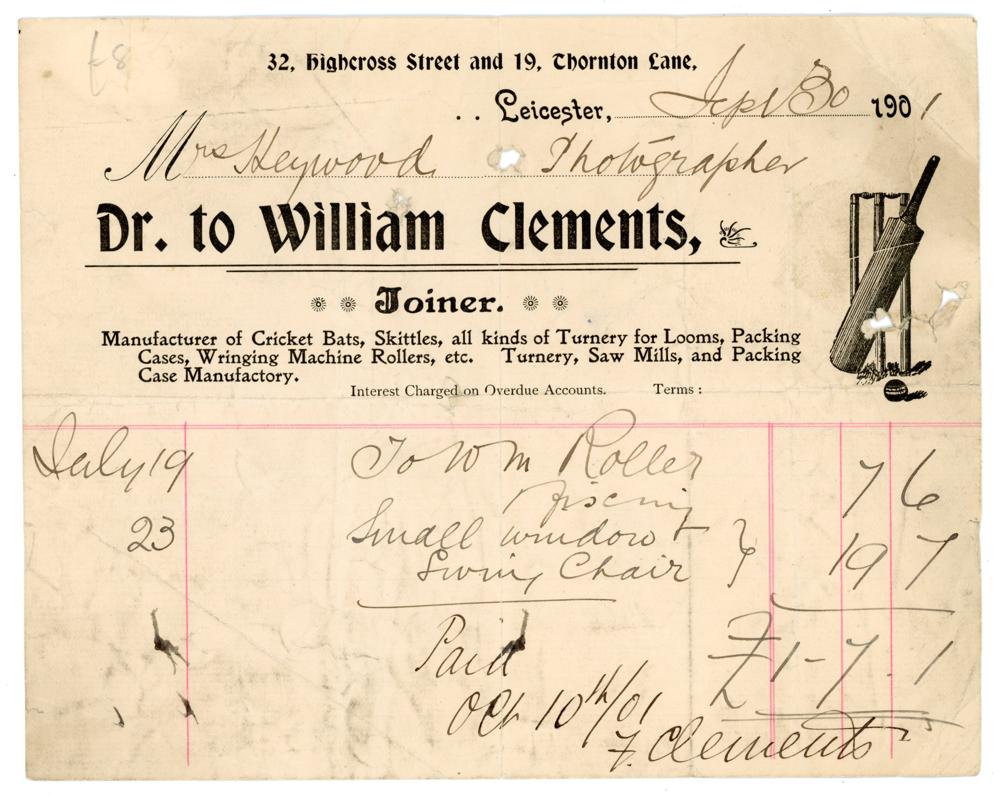 £8
32, Highcross Street and 19, Thornton Lane,
. . Leicester, Sept 30 1901
Mrs Heywood Photographer
Dr. to William Clements,
Joiner.
Manufacturer of Cricket Bats, Skittles, all kinds of Turnery for Looms, Packing
Cases, Wringing Machine Rollers, etc. Turnery, Saw Mills, and Packing
Case Manufactory.
Interest Charged on Overdue Accounts. Terms :
July 19 To W M Roller 7 6
23 Small window + } 19 7
Swing Chair
Paid £1-7.1
Oct 10th/01
F. Clements